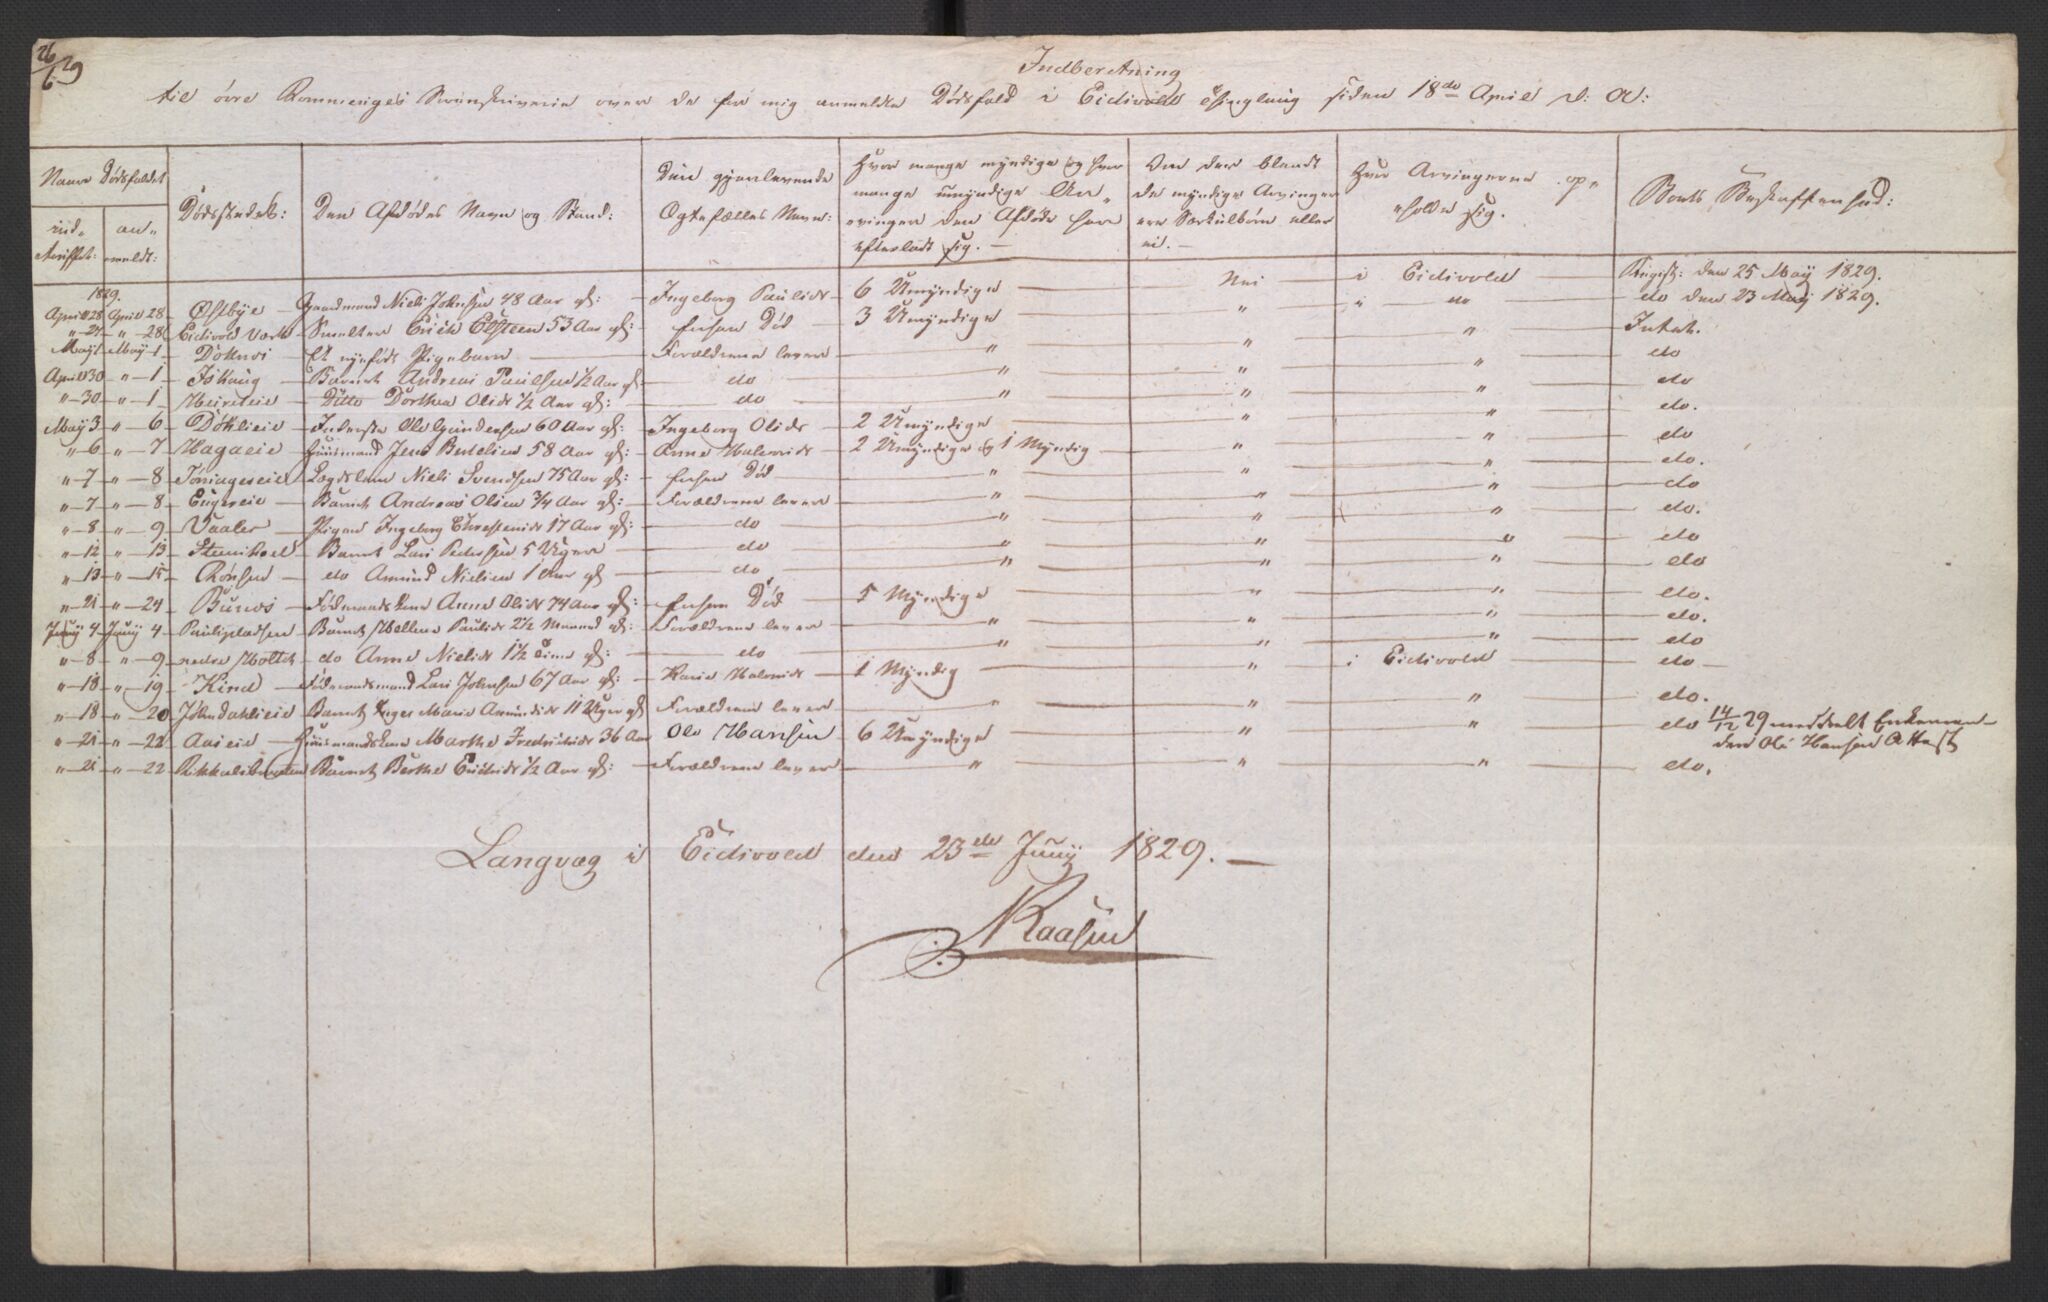 26/6 29
Indberetning
til øvre Rommeriges Sorenskriverie over de for mig anmeldte Dødsfald i Eidsvold siden 18de April d: A:
Naar Dødsfaldet
ind-
truffet:
an-
meldt:
Dødsstedet:
Den Afdødes Navn og Stand:
Den gjenlevende
Ægtefælles Navn:
Hvor mange myndige og hvor
mange umyndige Ar-
vinger den Afdøde har
efterladt sig. —
Om der blandt
de myndige Arvinger
ere Særkulbørn eller
ei. —
Hvor Arvingerne op-
holde sig.
Boets Beskaffenhed:
1829.
April 28 April 28 Østbye Gaardmand Niels Johnsen 48 Aar gl: Ingeborg Paulsdr 6 Umyndige Nei i Eidsvold Regist: den 25 May 1829.
" 27 " 28 Eidsvold Værk Smelter Erich Elsteen 53 Aar gl: hustru Død 3 Umyndige " " do do den 23 May 1829.
May 1 May 1 Doknoi Et nyefødt Pigebarn Forældrene lever " " " Intet.
April 30 " 1 Barnet Andreas Paulsen 1/2 Aar gl: do " " " do
" 30 " 1 Ditto Dorthea Olsdr 1/2 Aar gl: do " " " do
May 3 " 6 Døhlieie Inderste Ole Gundersen 60 Aar gl: Ingeborg Olsdr 2 Umyndige " " do.
" 6 " 7 Hagaeie Huusmand Jens Bertelsen 58 Aar gl: Anne Halvorsdr 2 Umyndige og 1 Myndig " " do
" 7 " 8 Lægdslem Niels Svendsen 75 Aar gl: Død " " " do.
" 7 " 8 Barnet Andreas Olsen 3/4 Aar gl: Forældrene lever " " " do
" 8 " 9 Vaaler Pigen Ingeborg Christensdr 17 Aar gl: do " " " do.
" 12 " 13 Barnet Lars Pedersen 5 Uger do " " " do
" 13 " 15 Rønsen do Amund Nielsen 1 Aar gl do " " " do
" 21 " 24 Bunes Fødmandskone Anne Olsdr 74 Aar gl: Død 5 Myndige " " do.
Juny 4 Juny 4 Paulspladsen Barnet Hellene Paulsdr 2 1/2 Maaned gl: Forældrene lever " " " do.
" 8 " 9 nedre Holtet do Anne Nielsdr 1 1/2 Time gl: do " " " do
" 18 " 19 Kind Føderaadsmand Lars Johnsen 67 Aar gl: Karie Halvorsdr 1 Myndig " i Eidsvold do —
" 18 " 20 Barnet Inger Marie Amundsdr 11 Uger gl Forældrene lever " " " do.
" 21 " 22 Aaseie Huusmandskone Marthe Fredrichsdr 36 Aar Ole Hansen 6 Umyndige " " do 14/12 29 meddeelt Enkeman-
den Ole Hansen Attest
" 21 " 22 Barnet Berthe Erichsdr 1/2 Aar gl: Forældrene lever " " " do.
Langvæg i Eidsvold den 23de Juny 1829. —
Kaasen